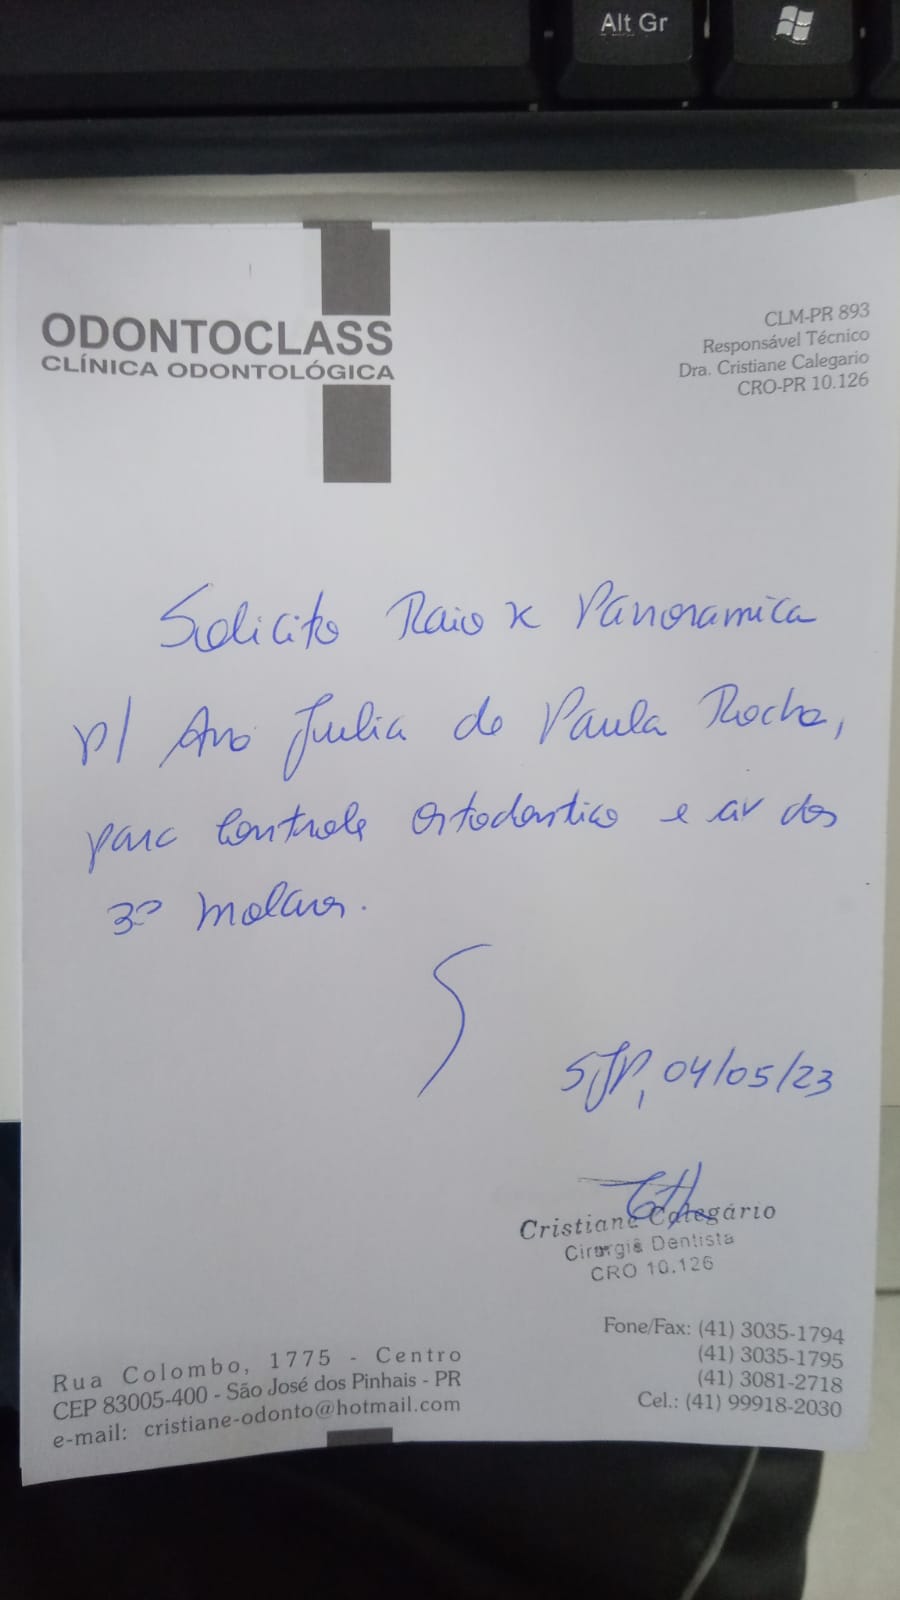 Alt Gr
ODONTOCLASS
CLÍNICA ODONTOLÓGICA
CLM-PR 893
Responsável Técnico
Dra. Cristiane Calegario
CRO-PR 10.126
Solicito Raio x Panoramica
p/ Ana Julia de Paula Rocha,
para Controle Ortodontico e av dos
3º molares.
SJP, 04/05/23
Cristiane Calegário
Cirurgiã Dentista
CRO 10.126
Rua Colombo, 1775 - Centro
CEP 83005-400 - São José dos Pinhais - PR
e-mail: cristiane-odonto@hotmail.com
Fone/Fax: (41) 3035-1794
(41) 3035-1795
(41) 3081-2718
Cel.: (41) 99918-2030